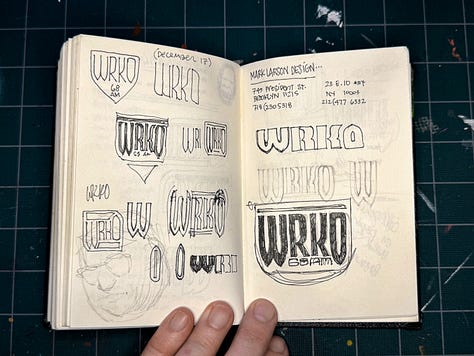 (DECEMBER 17)
WRKO
68
AM
WRKO
WRKO
68 AM
WRKO
WRKO
WRKO
W
WRKO
O O WRKO
MARK LARSON DESIGN...
749 PRESIDENT ST.
BROOKLYN 11215
718)230 5318
NY 10001
212)477 6332
WRKO
WRKO
W
WRKO
68AM